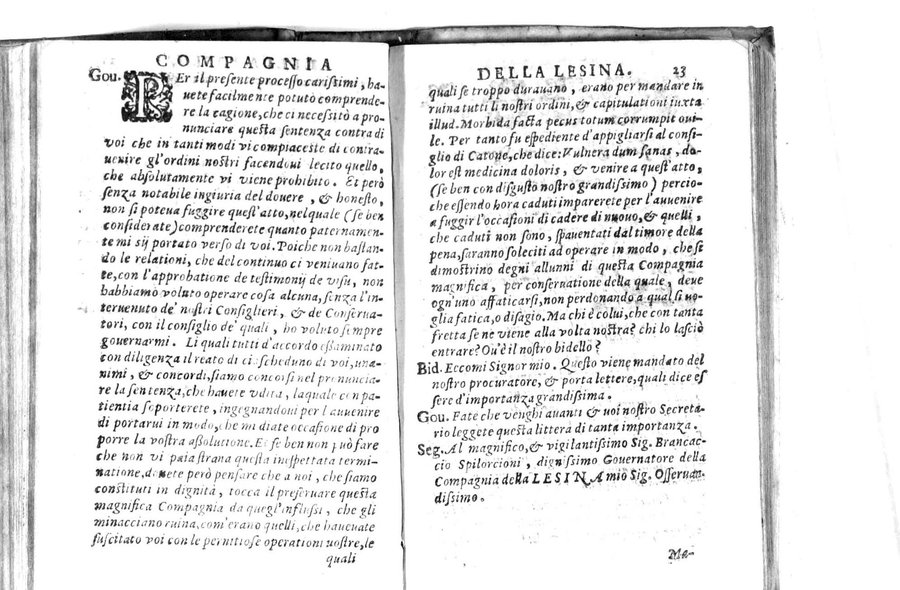 COMPAGNIA
Gou. PEr il presente processo carissimi, ha-
uete facilmente potuto comprende-
re la cagione, che ci necessitò a pro-
nunciare questa sentenza contra di
voi che in tanti modi vi compiaceste di contra-
uenire gl'ordini nostri facendoui lecito quello,
che absolutamente vi viene prohibito. Et però
senza notabile ingiuria del douere, & honesto,
non si poteua fuggire quest'atto, nelquale (se ben
considerate) comprenderete quanto paternamen-
te mi sij portato verso di voi. Poiche non bastan-
do le relationi, che del continuo ci veniuano fat-
te, con l'approbatione de testimonij de visu, non
habbiamo voluto operare cosa alcuna, senza l'in-
teruenuto de' nostri Consiglieri, & de Conserua-
tori, con il consiglio de' quali, ho voluto sempre
gouernarmi. Li quali tutti d'accordo essaminato
con diligenza il reato di ciascheduno di voi, una-
nimi, & concordi, siamo concorsi nel prononcia-
re la sentenza, che hauete vdita, laquale con pa-
tientia soporterete, ingegnandoui per l'auuenire
di portarui in modo, che mi diate occasione di pro
porre la vostra assolutione. Et se ben non può fare
che non vi paia strana questa inespettata termi-
natione, douete però pensare che a noi, che siamo
constituti in dignità, tocca il preseruare questa
magnifica Compagnia da quegl'influssi, che gli
minacciano ruina, com'erano quelli, che haueuate
suscitato voi con le pernitiose operationi vostre, le
quali
DELLA LESINA. 23
quali se troppo durauano, erano per mandare in
ruina tutti li nostri ordini, & capitulationi iuxta
illud. Morbida facta pecus totum corrumpit oui-
le. Per tanto fu espediente d'appigliarsi al consi-
glio di Catone, che dice: Vulnera dum sanas, do-
lor est medicina doloris, & venire a quest'atto,
(se ben con disgusto nostro grandissimo) percio-
che essendo hora caduti imparerete per l'auuenire
a fuggir l'occasioni di cadere di nuouo, & quelli,
che caduti non sono, spauentati dal timore della
pena, saranno soleciti ad operare in modo, che si
dimostrino degni allunni di questa Compagnia
magnifica, per conseruatione della quale, deue
ogn'uno affaticarsi, non perdonando a qual si uo-
glia fatica, o disagio. Ma chi è colui, che con tanta
fretta se ne viene alla volta nostra? chi lo lasciò
entrare? Ou'è il nostro bidello?
Bid. Eccomi Signor mio. Questo viene mandato del
nostro procuratore, & porta lettere, quali dice es
sere d'importanza grandissima.
Gou. Fate che venghi auanti & uoi nostro Secreta-
rio leggete questa littera di tanta importanza.
Seg. Al magnifico, & vigilantissimo Sig. Brancac-
cio Spilorcioni, dignissimo Gouernatore della
Compagnia della LESINA mio Sig. Osseruan-
dissimo.
Ma-